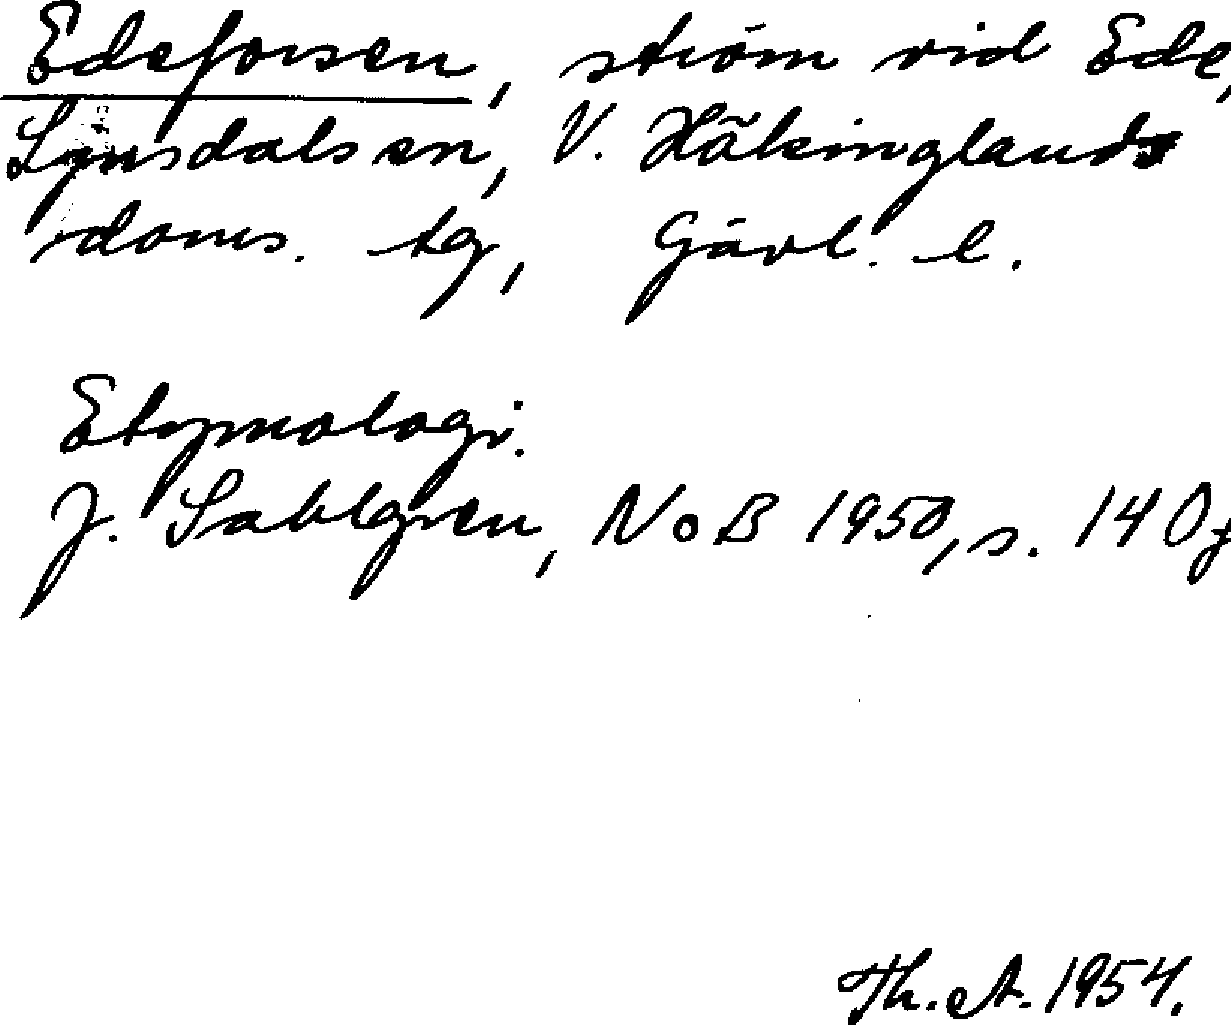 Edeforsen, ström vid Ede,
Ljusdals sn, V. Hälsinglands
doms. tg, Gävl. l.
Etymologi.
J. Sahlgren, NoB 1950, s. 140f
Th. A. 1954.